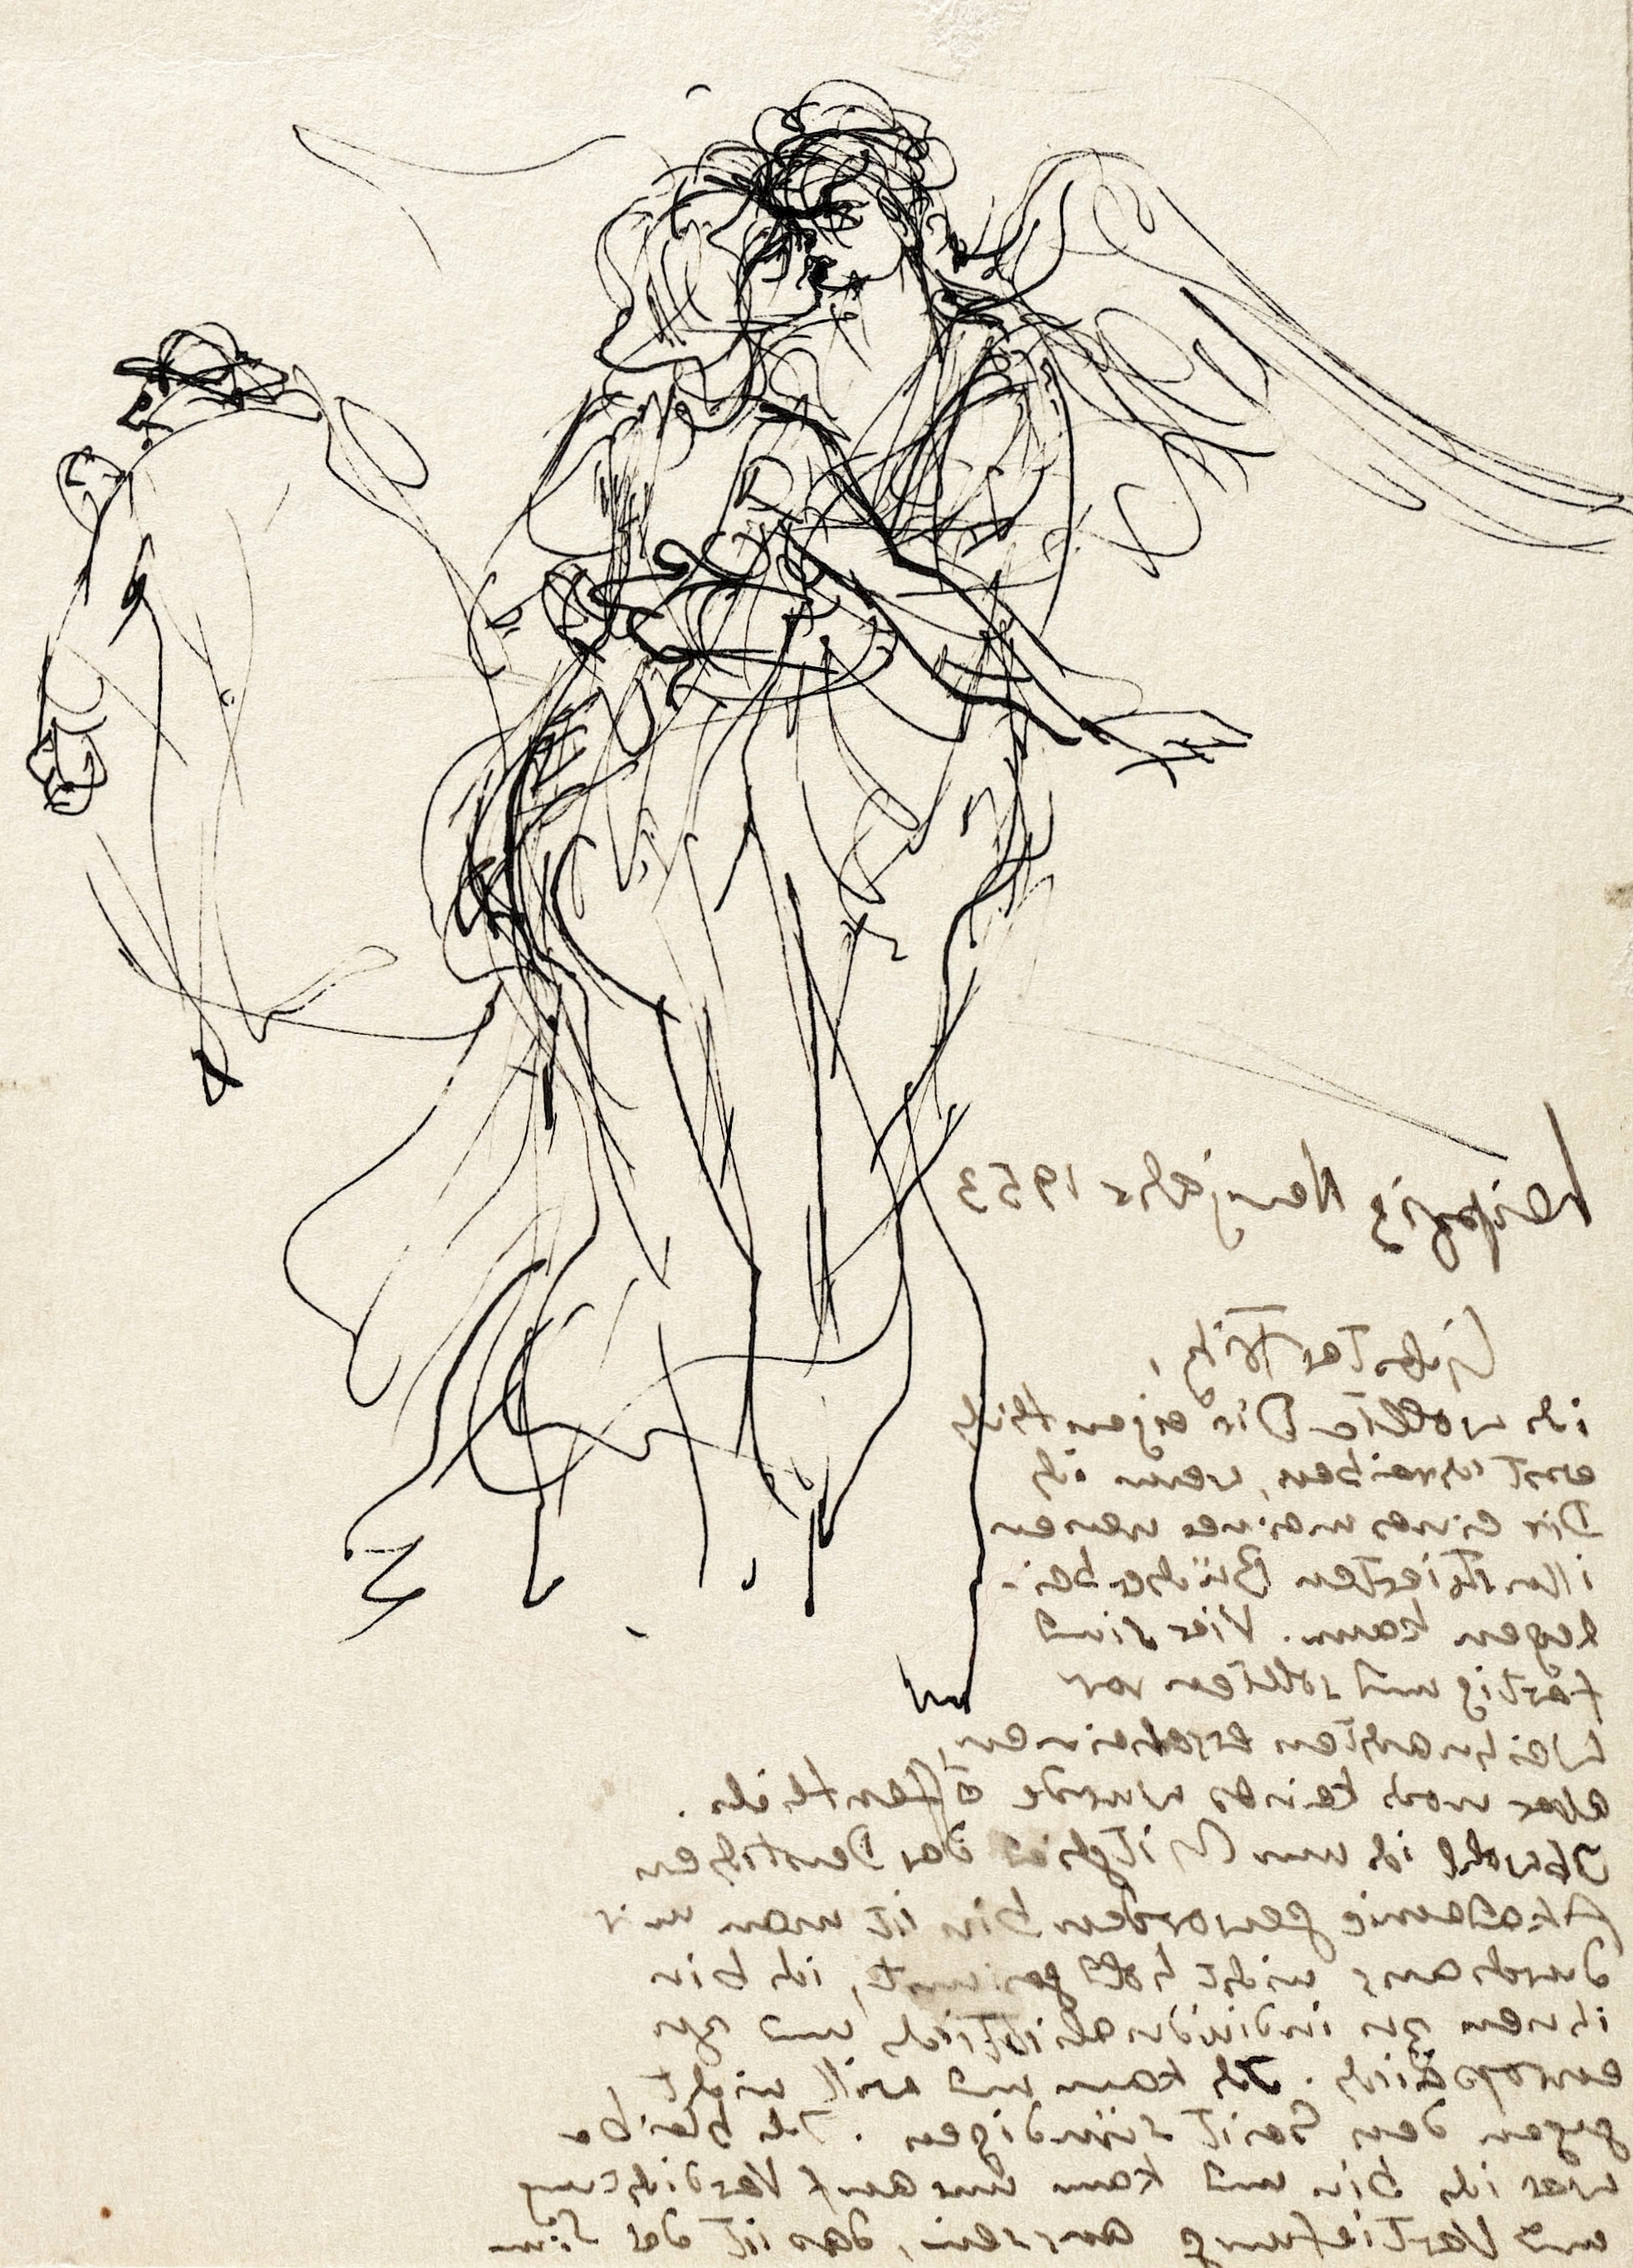 Leipzig Neujahr 1953
Liebster Fritz,
ich wollte Dir eigentlich
erst schreiben, wenn ich
Dir eines meiner neuen
illustrierten Bücher bei-
legen kann. Vier sind
fertig und sollten vor
Weihnachten erscheinen,
aber noch keines wurde öffentlich.
Obwohl ich nun Mitglied der Deutschen
Akademie geworden bin ist man mir
durchaus nicht hold gesinnt, ich bin
ihnen zu individualistisch und zu
europäisch. Ich kann und will nicht
gegen den Geist sündigen. Ich bleibe
wer ich bin und kann nur auf Verdichtung
und Vertiefung aus sein, das ist der Sinn